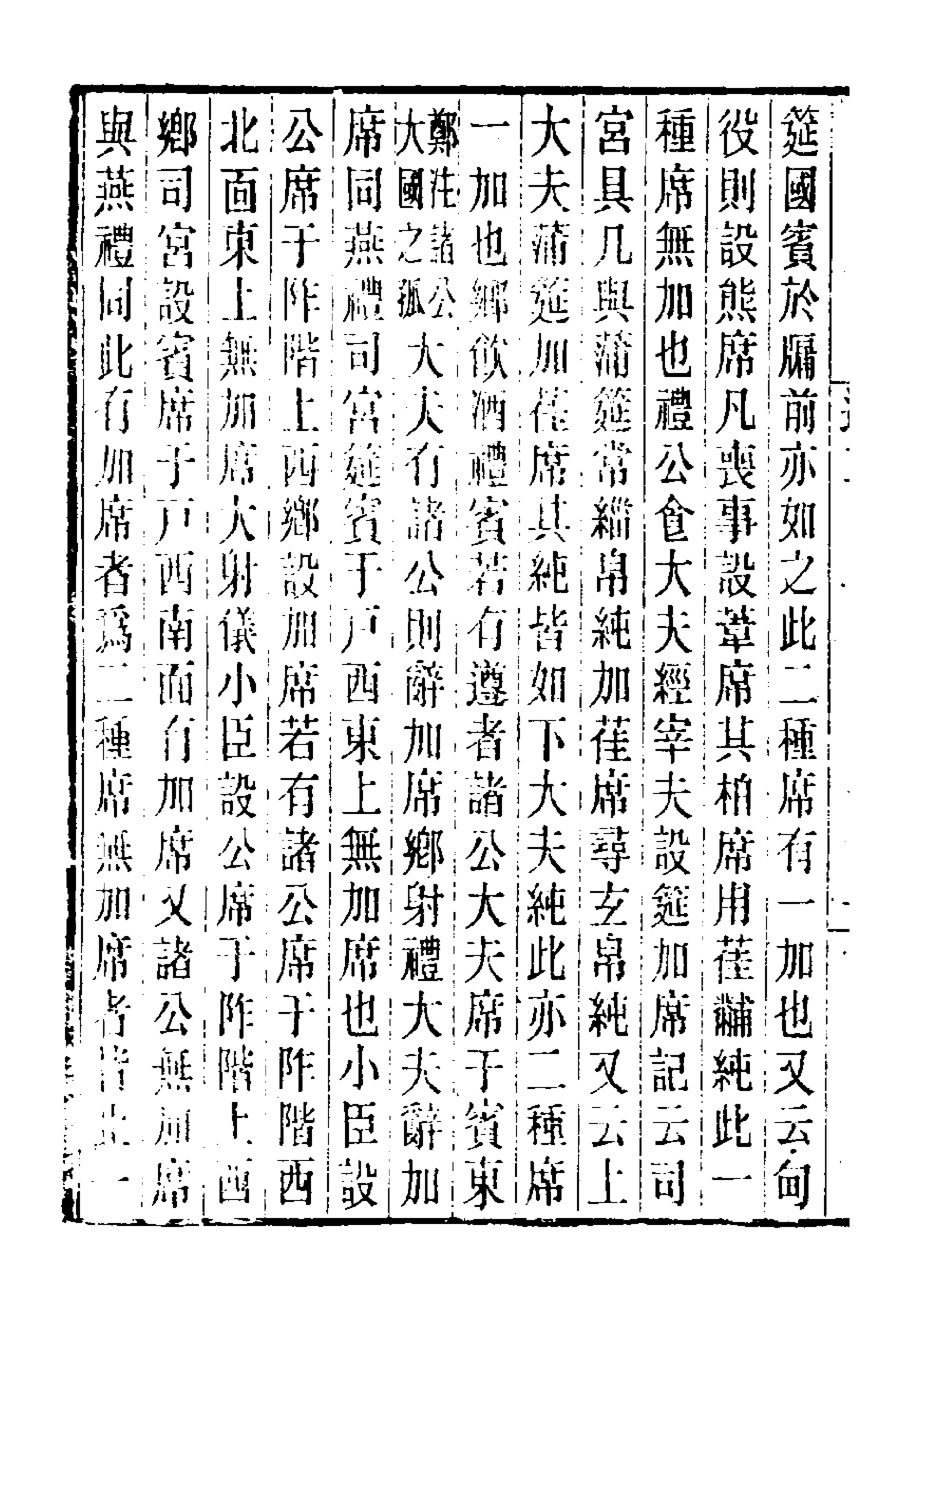 筵國賓於牖前亦如之此二種席有一加也又云甸
役則設熊席凡喪事設葦席其柏席用萑黼純此一
種席無加也禮公食大夫經宰夫設筵加席記云司
宮具几與蒲筵常緇帛純加萑席尋玄帛純又云上
大夫蒲筵加萑席其純皆如下大夫純此亦二種席
一加也鄉飲酒禮賓若有遵者諸公大夫席于賓東
鄭注諸公大國之孤大夫有諸公則辭加席鄉射禮大夫辭加
席同燕禮司宮筵賓于戶西東上無加席也小臣設
公席于阼階上西鄉設加席若有諸公席于阼階西
北面東上無加席大射儀小臣設公席于阼階上西
鄉司宮設賓席于戶西南面有加席又諸公無加席
與燕禮同此有加席者爲二種席無加席者皆止一